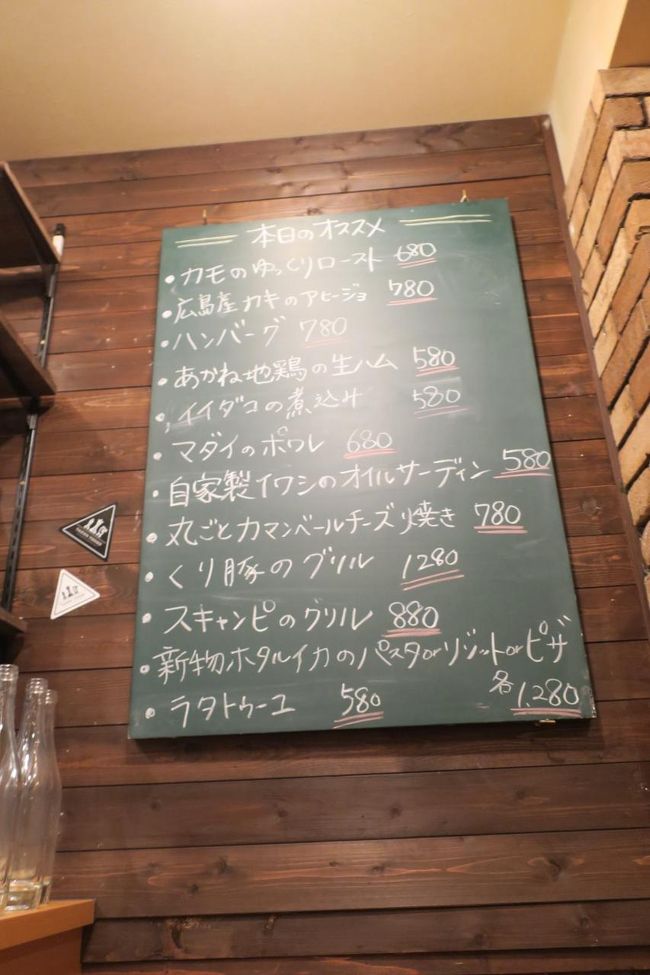 本日のオススメ
・カモのゆっくりロースト 680
・広島産カキのアヒージョ 780
・ハンバーグ 780
・あかね地鶏の生ハム 580
・イイダコの煮込み 580
・マダイのポワレ 680
・自家製イワシのオイルサーディン 580
・丸ごとカマンベールチーズ焼き 780
・くり豚のグリル 1280
・スキャンピのグリル 880
・新物ホタルイカのパスタorリゾットorピザ
各1,280
・ラタトゥーユ 580